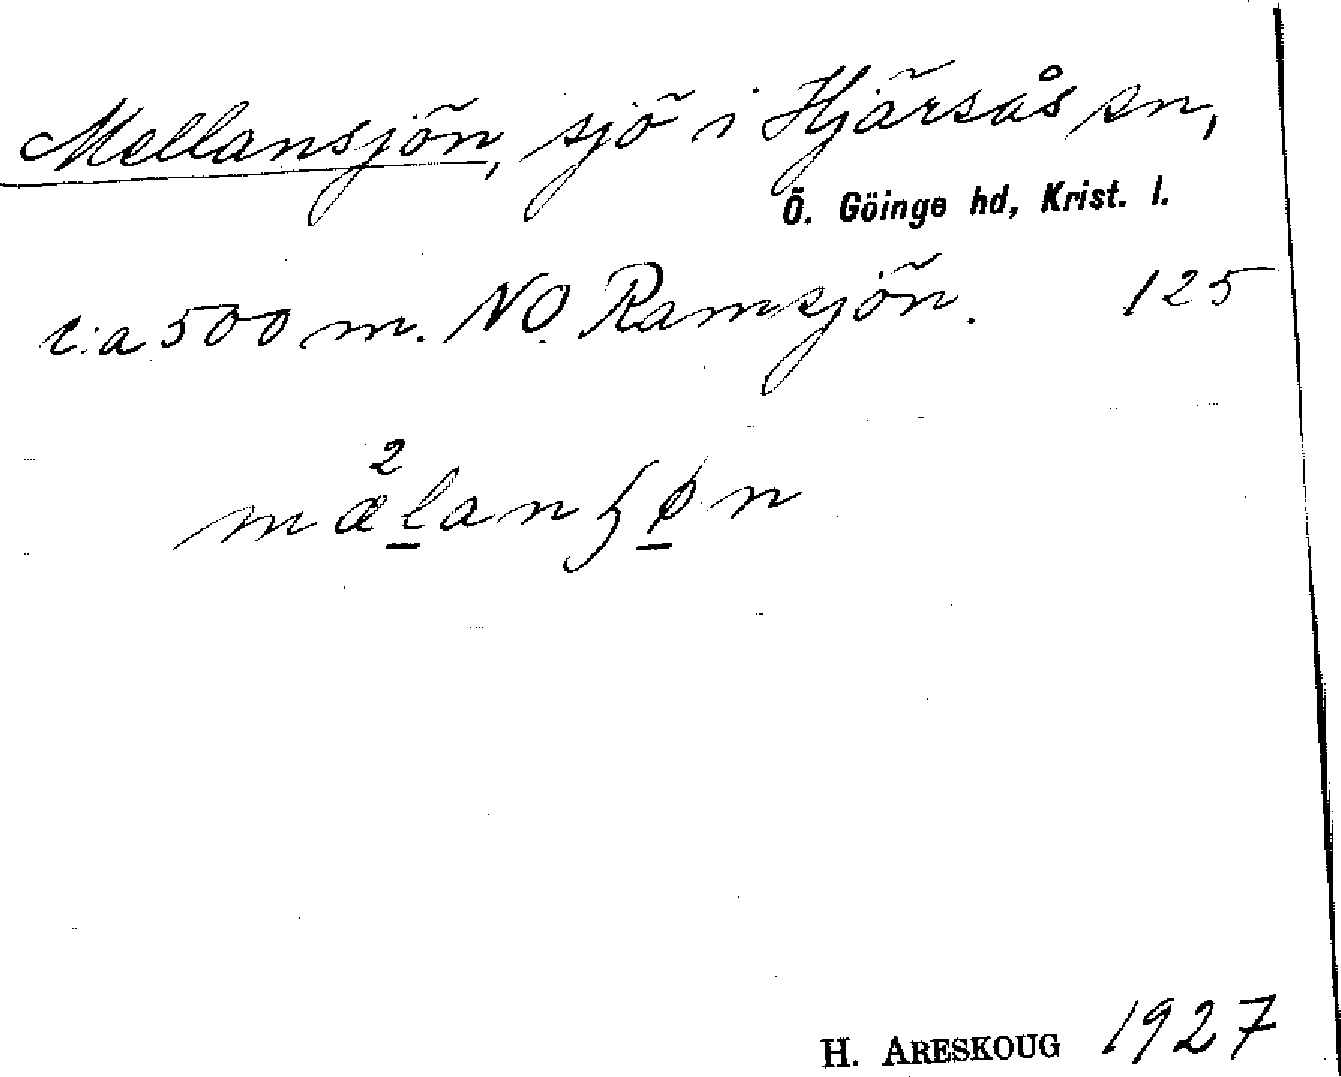 Mellansjön, sjö i Hjärsås sn,
Ö. Göinge hd, Krist. l.
c:a 500 m. NO. Ramsjön. 125
H. ARESKOUG 1927